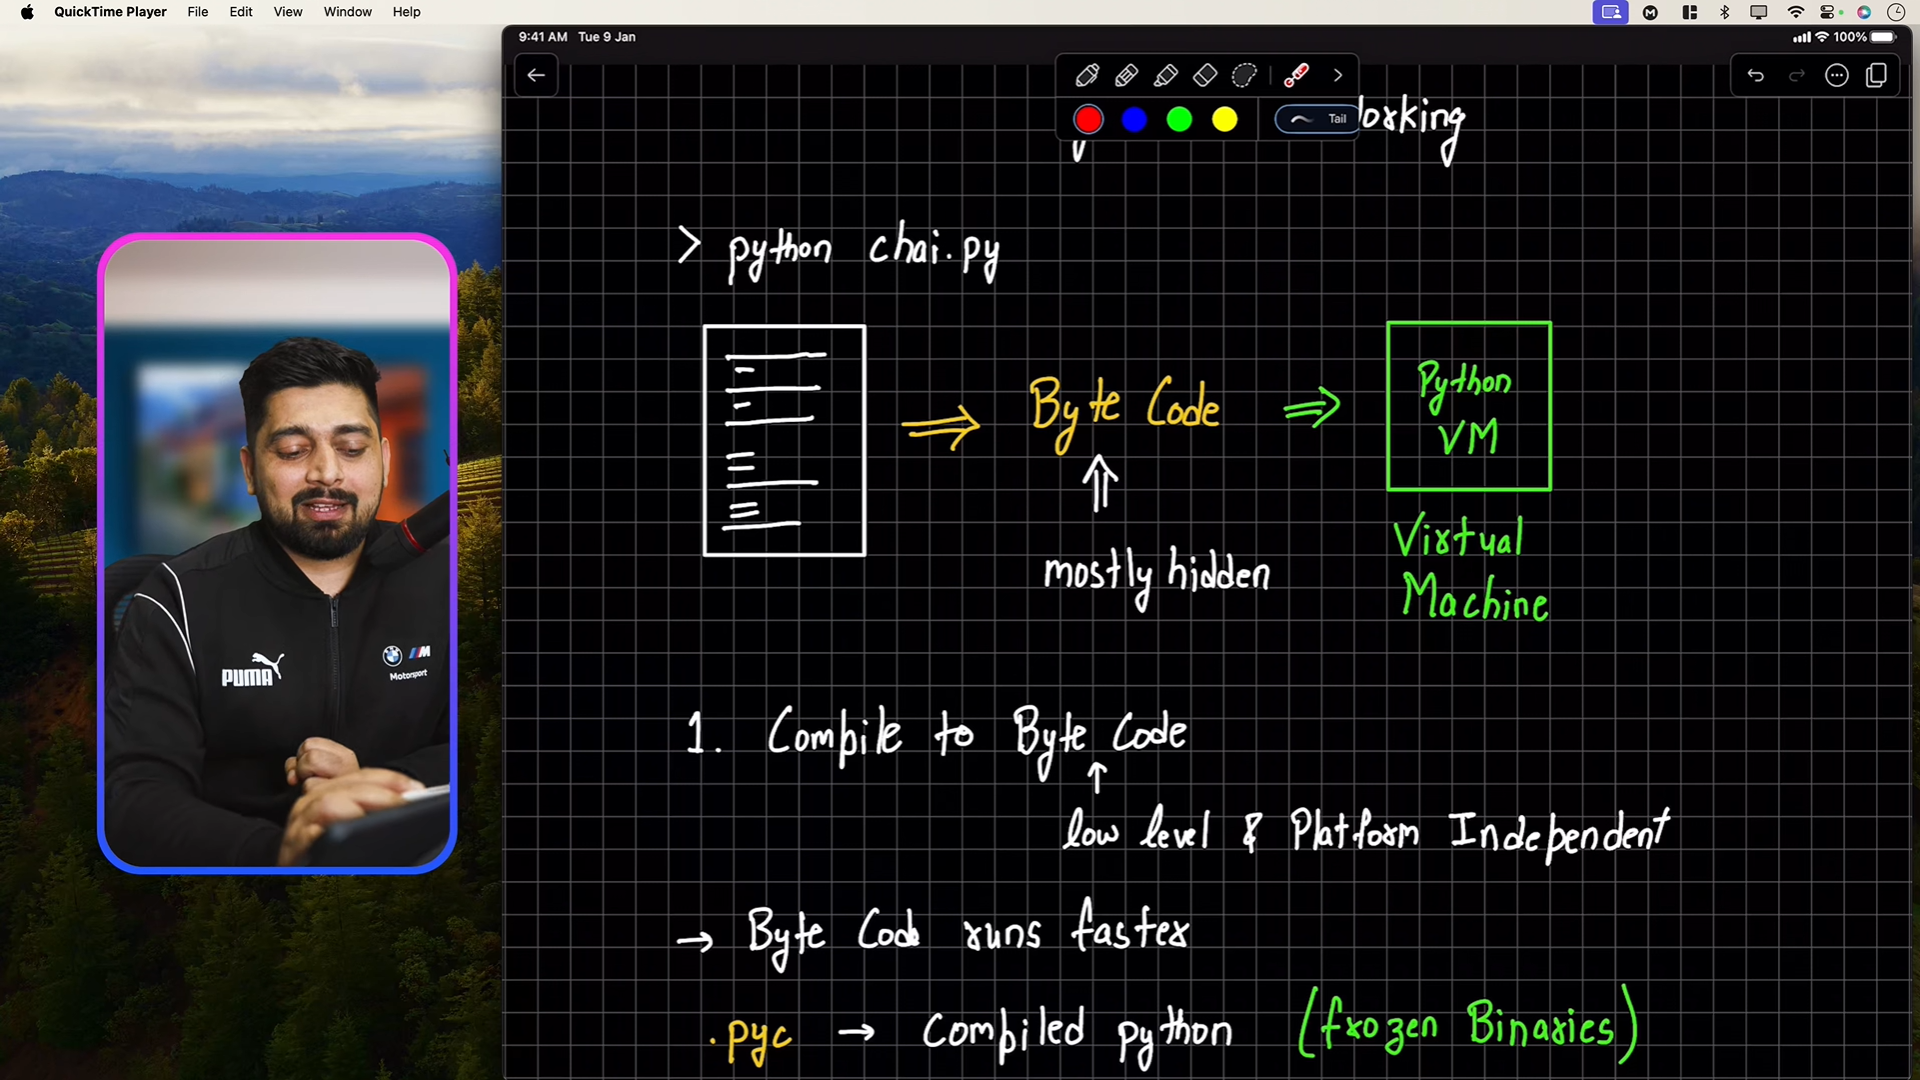 QuickTime Player File Edit View Window Help
9:41 AM Tue 9 Jan
100%
Tail
orking
> python chai.py
Byte Code
Python
VM
mostly hidden
Virtual
Machine
PUMA
Motorsport
1. Compile to Byte Code
low level & Platform Independent
→ Byte Code runs faster
.pyc → Compiled python (frozen Binaries)